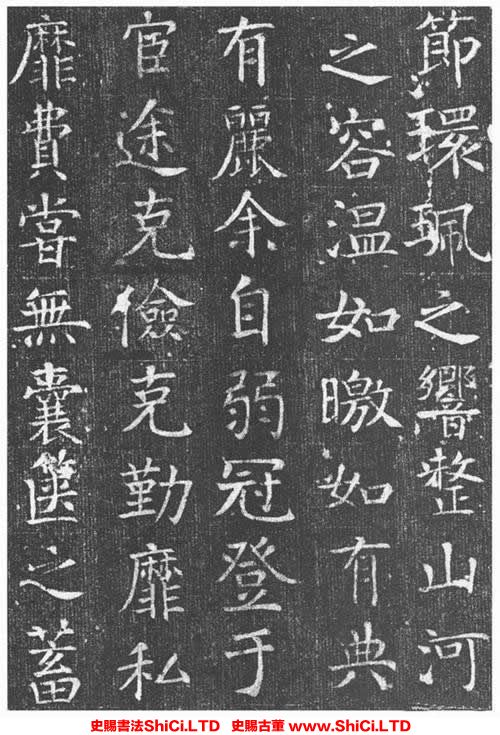 節環珮之響整山河
之容温如曒如有典
有麗余自弱冠登于
宦途克儉克勤靡私
靡費嘗無囊篋之蓄
史賜書法ShiCi.LTD 史賜古董 www.ShiCi.LTD